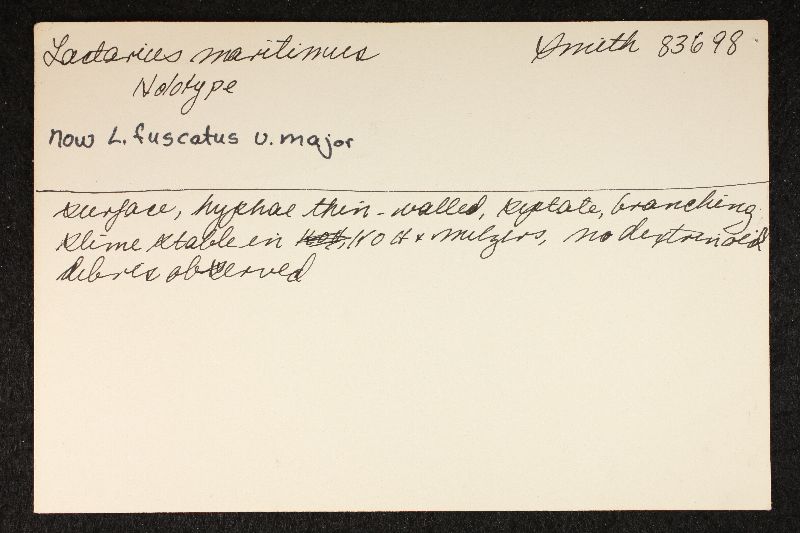 Lactarius maritimus Smith 83698
Holotype
now L. fuscatus v. major
surface, hyphae thin-walled, septate, branching
slime stable in KOH & Melzers, no dextrinoid
debris observed